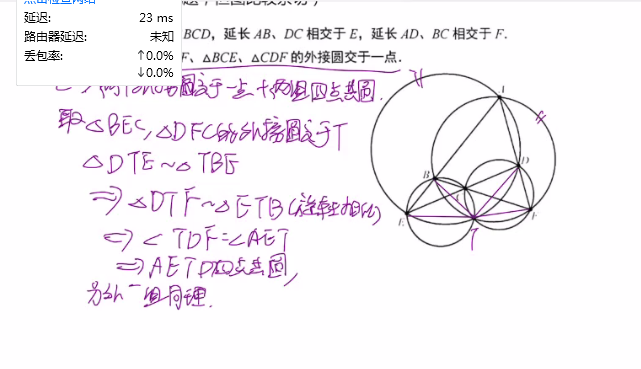 延迟: 23 ms
路由器延迟: 未知
丢包率: ↑0.0%
↓0.0%
BCD，延长 AB、DC 相交于 E，延长 AD、BC 相交于 F．
F、△BCE、△CDF 的外接圆交于一点．
圆交于一点 十 两组四点共圆.
取△BEC, △DFC的外接圆交于T
△DTE~△TBF
⇒ △DTF~△ETB(旋转相似)
⇒ ∠TDF=∠AET
⇒ AETD四点共圆,
另外一组同理.
A
B
D
E
F
T